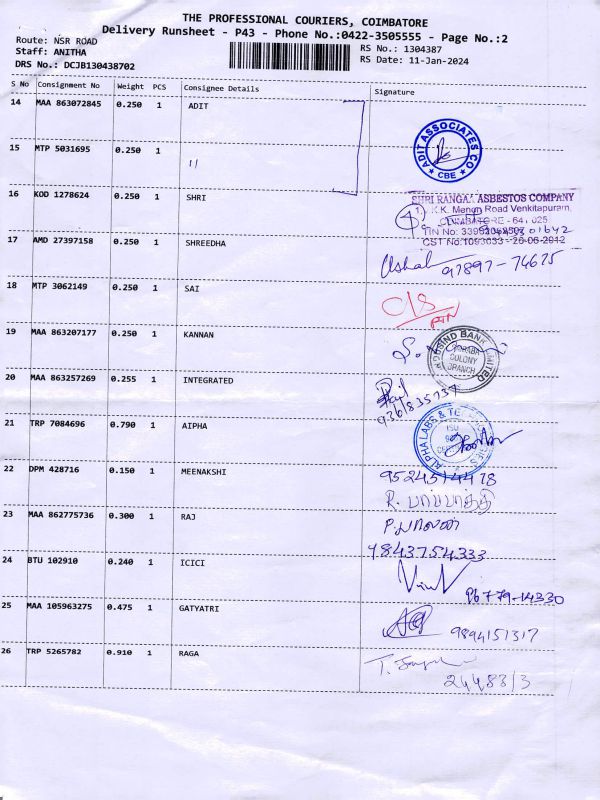 THE PROFESSIONAL COURIERS, COIMBATORE
Delivery Runsheet - P43 - Phone No.:0422-3505555 - Page No.:2
Route: NSR ROAD
RS No.: 1304387
Staff: ANITHA
RS Date: 11-Jan-2024
DRS No.: DCJB130438702
S No Consignment No Weight PCS Consignee Details Signature
14 MAA 863072845 0.250 1 ADIT
ADIT ASSOCIATES CO
CBE
15 MTP 5031695 0.250 1 11
16 KOD 1278624 0.250 1 SHRI
SHRI RANGAA ASBESTOS COMPANY
K.K. Menon Road Venkitapuram,
COIMBATORE - 641 025
CST No:1093033 - 20-06-2012
17 AMD 27397158 0.250 1 SHREEDHA
Ushal 97897-74675
18 MTP 3062149 0.250 1 SAI
C/S
19 MAA 863207177 0.250 1 KANNAN
S.
INDUSIND BANK LIMITED
COLONY
BRANCH
20 MAA 863257269 0.255 1 INTEGRATED
936/835737
21 TRP 7084696 0.790 1 AIPHA
ALPHA LABS & TECHNOLOGIES
22 DPM 428716 0.150 1 MEENAKSHI
9524514478
R. பாப்பாத்தி
23 MAA 862775736 0.300 1 RAJ
P.யாலண
9843754333
24 BTU 102910 0.240 1 ICICI
96779-14330
25 MAA 105963275 0.475 1 GATYATRI
9894151317
26 TRP 5265782 0.910 1 RAGA
24483/3